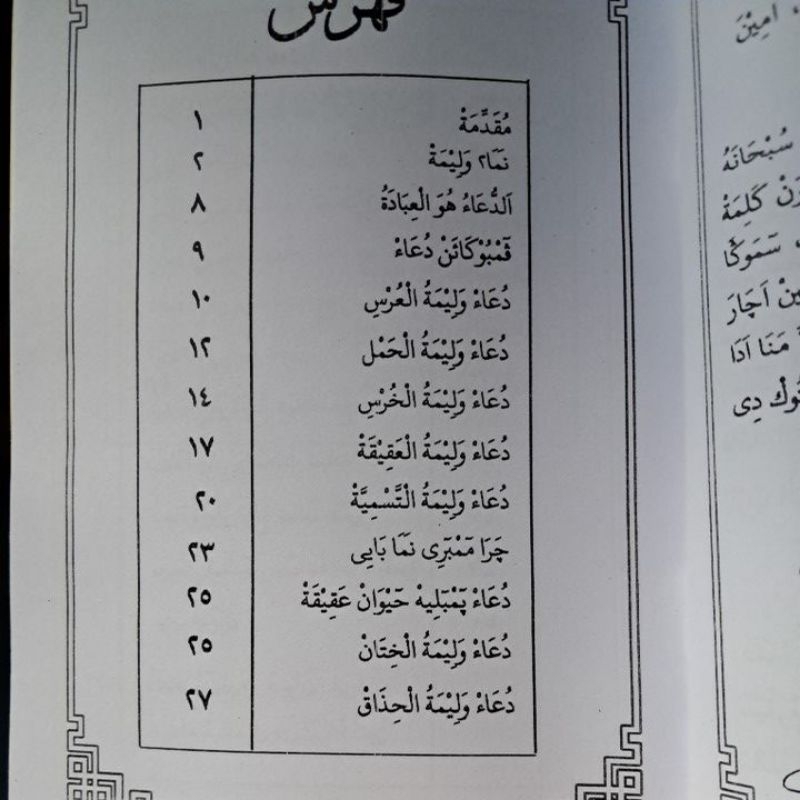 اٰمِيْنَ
سُبْحَانَهُ
كَلِمَةْ
سَمَوݢَا
اَچَارَ
مَنَا اَدَا
دِى
فهرس
مُقَدِّمَةْ ١
نَمَا٢ وَلِيْمَةْ ٢
اَلدُّعَاءُ هُوَ الْعِبَادَةُ ٨
ڤَمْبُوْكَائَنْ دُعَاءْ ٩
دُعَاءْ وَلِيْمَةُ الْعُرْسِ ١٠
دُعَاءْ وَلِيْمَةُ الْحَمْل ١٢
دُعَاءْ وَلِيْمَةُ الْخُرْسِ ١٤
دُعَاءْ وَلِيْمَةُ الْعَقِيْقَةْ ١٧
دُعَاءْ وَلِيْمَةُ التَّسْمِيَّةْ ٢٠
چَرَا مَمْبَرِى نَمَا بَايِى ٢٣
دُعَاءْ پَمْبَلِيهْ حَيْوَانْ عَقِيْقَةْ ٢٥
دُعَاءْ وَلِيْمَةُ الْخِتَانْ ٢٥
دُعَاءْ وَلِيْمَةُ الْحِذَاقْ ٢٧